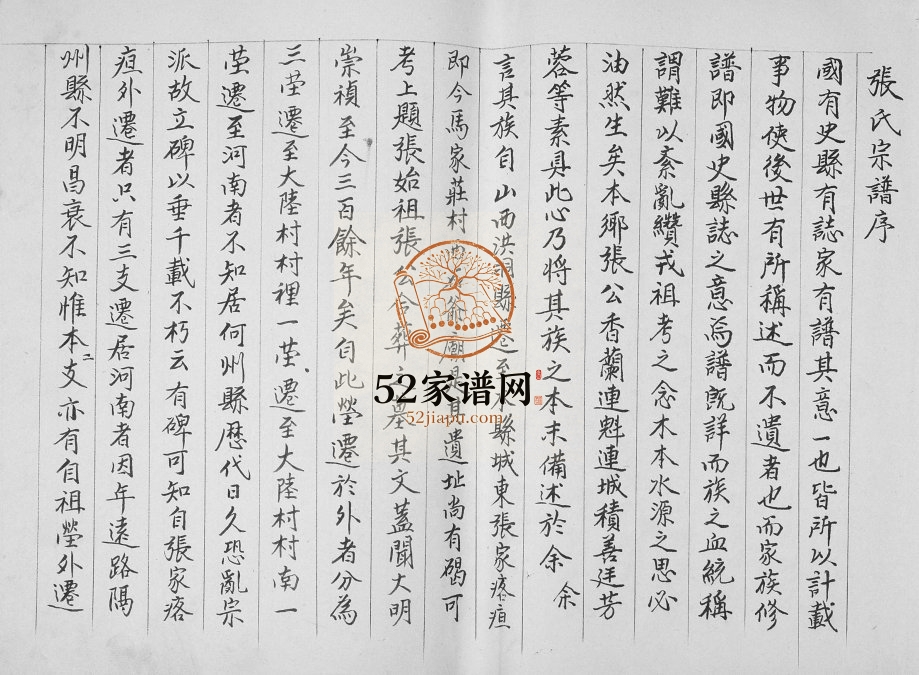 張氏宗譜序
國有史縣有誌家有譜其意一也皆所以計載
事物使後世有所稱述而不遺者也而家族修
譜即國史縣誌之意為譜既詳而族之血統稱
謂難以紊亂纘戎祖考之念木本水源之思必
油然生矣本鄉張公香蘭連魁連城積善廷芳
蓉等素具此心乃將其族之本末備述於余余
言其族自山西洪洞縣遷至 縣城東張家疙疸
即今馬家莊村 廟是其遺址尚有碣可
考上題張始祖張公合葬之墓其文蓋聞大明
崇禎至今三百餘年矣自此塋遷於外者分為
三塋遷至大陸村村裡一塋遷至大陸村村南一
塋遷至河南者不知居何州縣歷代日久恐亂宗
派故立碑以垂千載不朽云有碑可知自張家疙
疸外遷者只有三支遷居河南者因年遠路隔
州縣不明昌衰不知惟本二支亦有自祖塋外遷
52家谱网
52jiapu.com